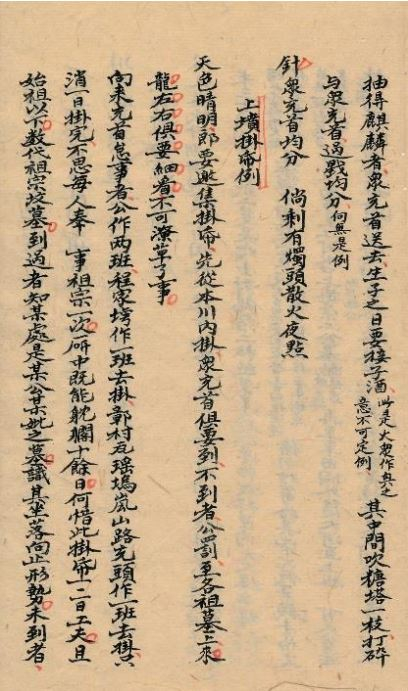 抽得麒麟者衆充首送去生子之日要接子酒 此是大衆作興之
意不可定例 其中間吹糖塔一枝打碎
与衆充首過戥均分 何無是例
針衆充首均分 倘剩有燭頭散火夜點
上墳掛帛例
天色晴明郎要邀集掛帛先從本川内掛衆充首俱要到不到者公罰至各祖墓上來
龍左右俱要細看不可潦草了事
向来充首怠事者公作两班程家塝作一班去掛郭村及瑶塢嵐山路充頭作一班去掛只
消一日掛完不思每人奉 事祖宗一次所中既能躭擱十餘日何惜此掛帛一二日工夫且
始祖以下数代祖宗坟墓到過者知某處是某公某妣之墓識其坐落向止形勢未到者